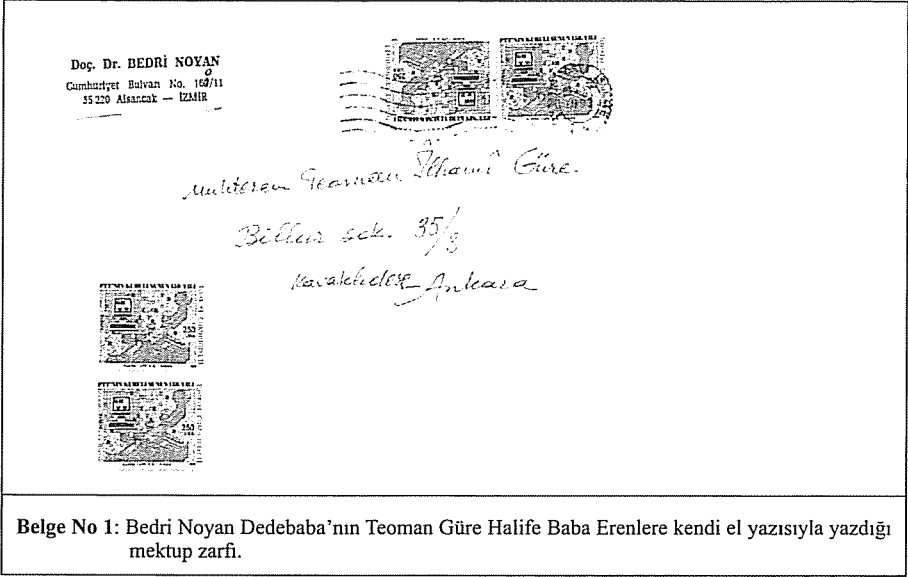 Doç. Dr. BEDRİ NOYAN
Cumhuriyet Bulvarı No. /11
35220 Alsancak — İZMİR
Muhterem Teoman İlhamî Güre.
Billur sok. 35/8
Kavaklıdere - Ankara
250
250
Belge No 1: Bedri Noyan Dedebaba’nın Teoman Güre Halife Baba Erenlere kendi el yazısıyla yazdığı
mektup zarfı.